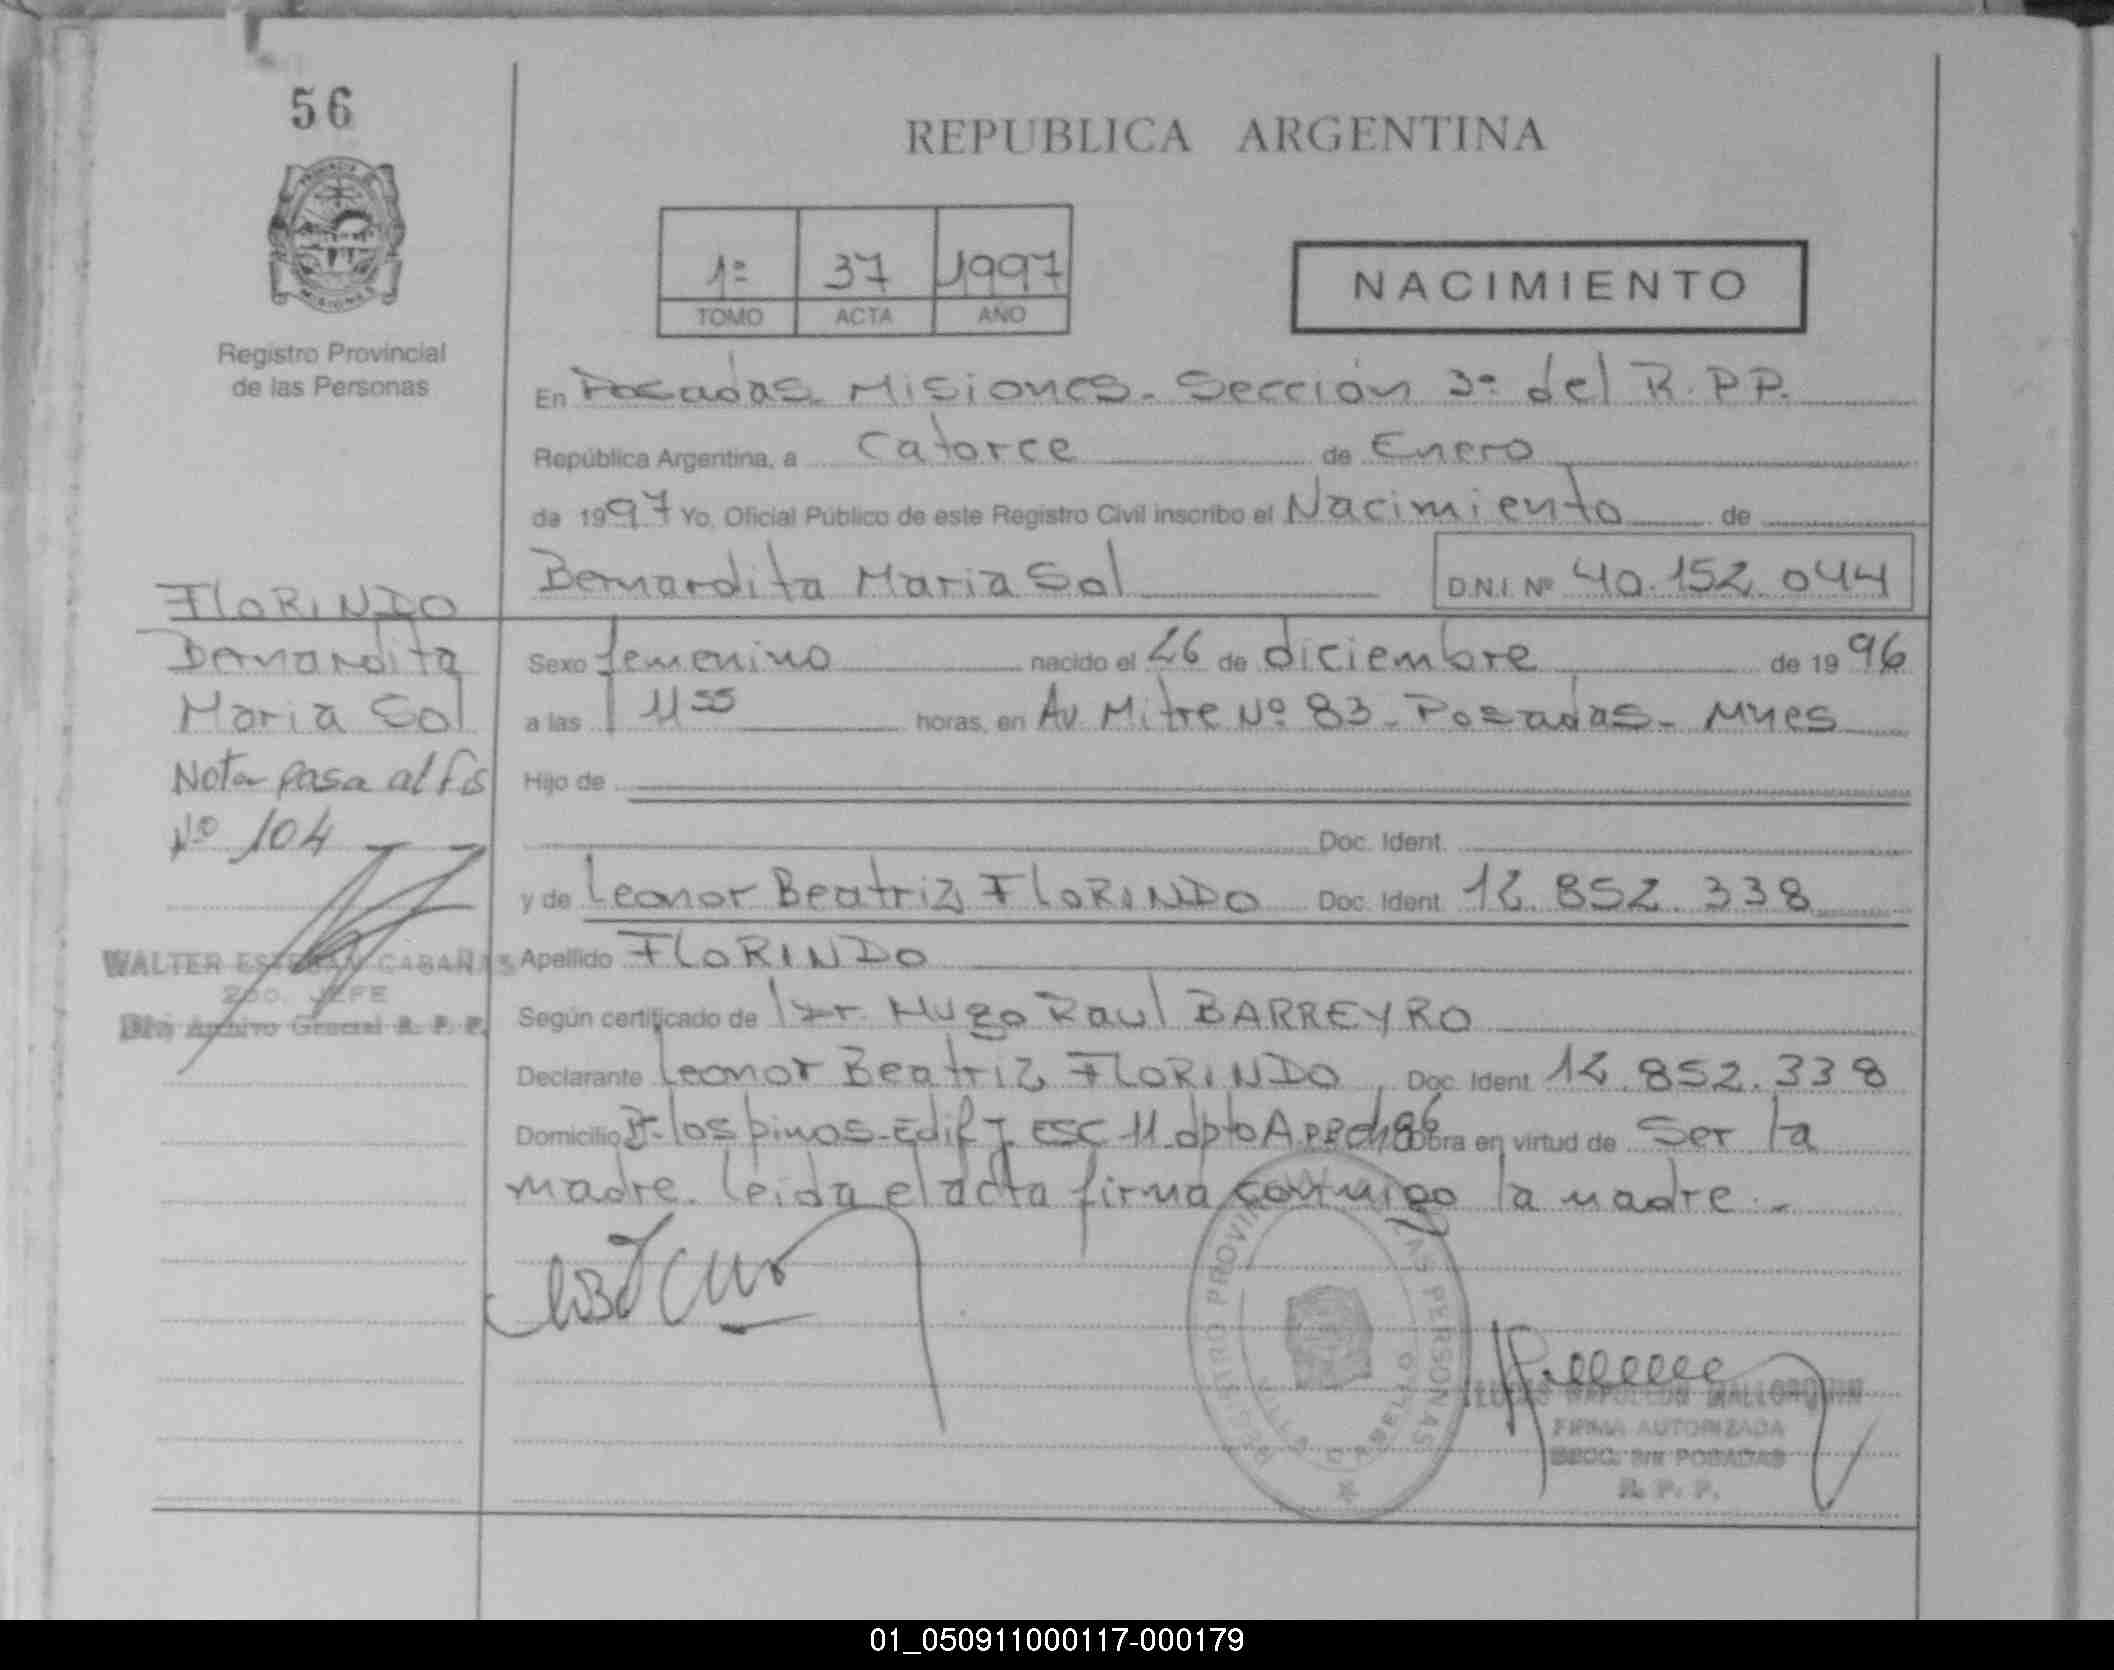 56
REPUBLICA ARGENTINA
PROVINCIA DE
MISIONES
Registro Provincial
de las Personas
1º 37 1997
TOMO ACTA AÑO
NACIMIENTO
En Posadas. Misiones. Sección 3º del R.P.P.
República Argentina, a Catorce de Enero
de 1997 Yo, Oficial Público de este Registro Civil inscribo el Nacimiento de
Bernardita Maria Sol D.N.I. Nº 40.152.044
FLORINDO
Bernardita
Maria Sol
Nota pasa al fs
Nº 104
WALTER ESTEBAN CABAÑAS
2do. JEFE
Archivo Gral R. P. P.
Sexo femenino nacido el 26 de diciembre de 1996
a las 11 55 horas, en Av. Mitre Nº 83 - Posadas - Mnes
Hijo de
Doc. Ident.
y de Leonor Beatriz FLORINDO Doc. Ident. 12.852.338
Apellido FLORINDO
Según certificado de Dr. Hugo Raul BARREYRO
Declarante Leonor Beatriz FLORINDO, Doc. Ident 12.852.338
Domicilio Bº los pinos - Edif 7 esc 11 dpto A obra en virtud de Ser la
madre. leida el acta firma conmigo la madre.-
REGISTRO PROVINCIAL DE LAS PERSONAS
LUCAS NAPOLEON MALLORQUIN
FIRMA AUTORIZADA
SECC. 3ra POSADAS
R. P. P.
01_050911000117-000179